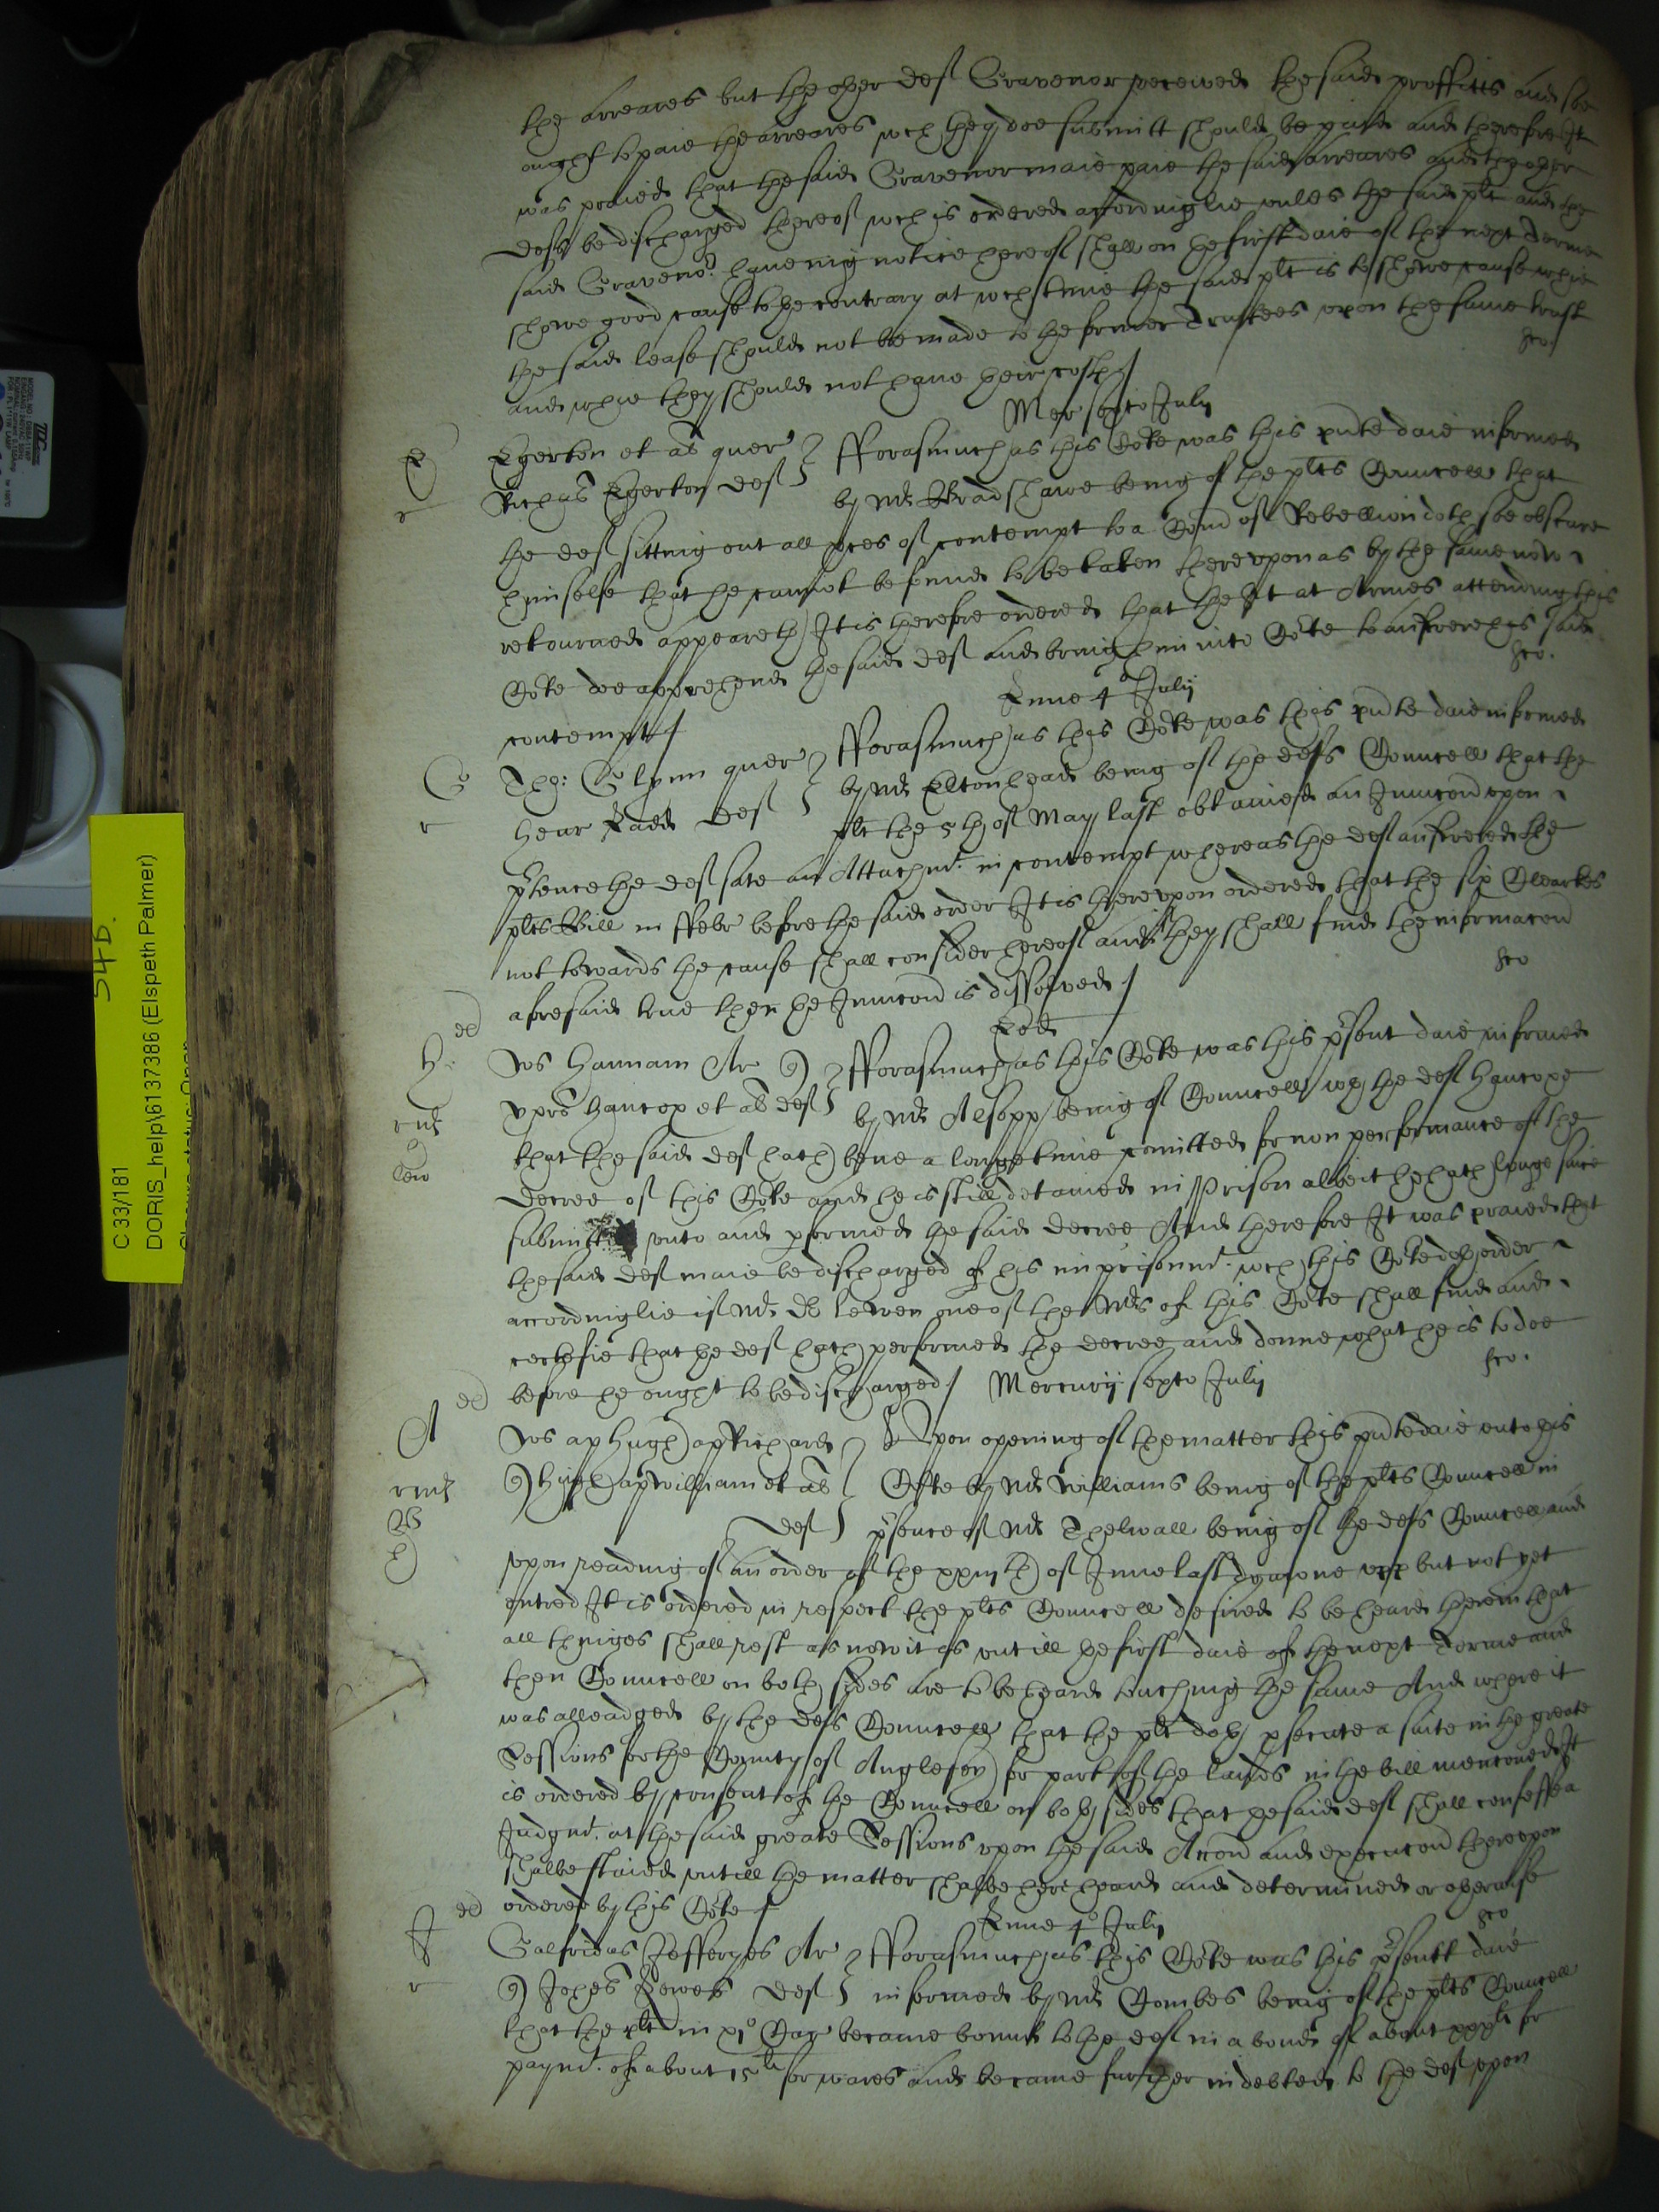 the arreares but the other def Gravenor receiued the said proffitts and soe
ought to paie the arreares wch they doe submitt should be paid and therefore It
was praied that the said Gravenor maie paie the said arreares and the other
defs be discharged thereof wch is ordered accordinglie vnles the said plt and the
said Graveno:r haueing notice hereof shall on the first daie of the next Terme
showe good cause to the contrary at wch time the said plt is to showe cause whie
the said lease should not bee made to the former Trustees vpon the same trust
and whie they should not haue their costs /
Mer sexto July
Egerton et al quer } fforasmuch as this Co:te was this pnte daie informed
Richus Egerton def } by Mr Bradshawe being of the plts Councell that
the def sitting out all pces of contempt to a Com of Rebellion doth soe obscure
himselfe that he cannot be found to be taken therevpon as by the same now
retourned appeareth It is therefore ordered that the St at Armes attending this
Co:te doe apprehend the said def and bring him into Co:te to answere his said
contempt /
Lune 4o July
Tho: Glynn quer } fforasmuch as this Co:te was this pnte daie informed
Hear def } by Mr Eltonhead being of the defs Councell that the
plt the 5th of May last obtained an Iniuncon vpon
ptence the def sate an Attachmt. in contempt whereas the def answered the
plts Bill in ffebr before the said order It is therevpon ordered that the six Clearkes
not towards the cause shall consider hereof and if they shall find the informacon
aforesaid true then the Iniuncon is dissolved /
Eod
Ws Hannam Ar q } fforasmuch as this Co:te was this psent daie informed
Hancox et al def } by Mr Alsopp being of Councell wth the def Hancoxe
that the said def hath bene a longe time comitted for non performance of the
decree of this Co:te and he is still detained in Prison albeit he hath longe since
submitted vnto and pformed the said decree And therefore It was praied that
the said def maie be discharged of his imprisonmt. wch this Co:te doth order
accordinglie if Mr Dr Lewen one of the Mrs of this Co:te shall find and
certefie that the def hath performed the decree and donne what he is to doe
before he ought to be discharged / Mercurij sexto July
Ws ap Hugh ap Richard } Vpon opening of the matter this pnte daie vnto this
q Hugh ap William et al } Co:te by Mr Williams being of the plts Councell in
def } psence of Mr Thelwall being of the defs Councell and
vpon reading of an order of the xxiijth of June last drawne vpp but not yet
entred It is ordered in respect the plts Councell desired to be heard herein that
all thinges shall rest as now it is vntill the first daie of the next Terme and
then Councell on both sides are to be heard touching the same And where it
was alleadged by the defs Councell that the plt doth psecute a suite in the greate
Sessions for the County of Anglesey for part of the lands in the bill menconed It
is ordered by consent of the Councell on both sides that the said def shall confesse a
Judgmt. at the said greate Sessions vpon the said Accon and execucon therevpon
shalbe staied vntill the matter shalbe here heard and determined or otherwise
ordered by this Co:te /
Lune 4o July
Galfridus Jefferyes Ar } fforasmuch as this Co:te was this psentt daie
q Johes def } informed by Mr Combes being of the plts Councell
that the plt in Car became bound to the def in a bond of about for
paymt. of about 15li for wares and became further indebted to the def vpon
C 33/181
DORIS_help\6137386 (Elspeth Palmer)